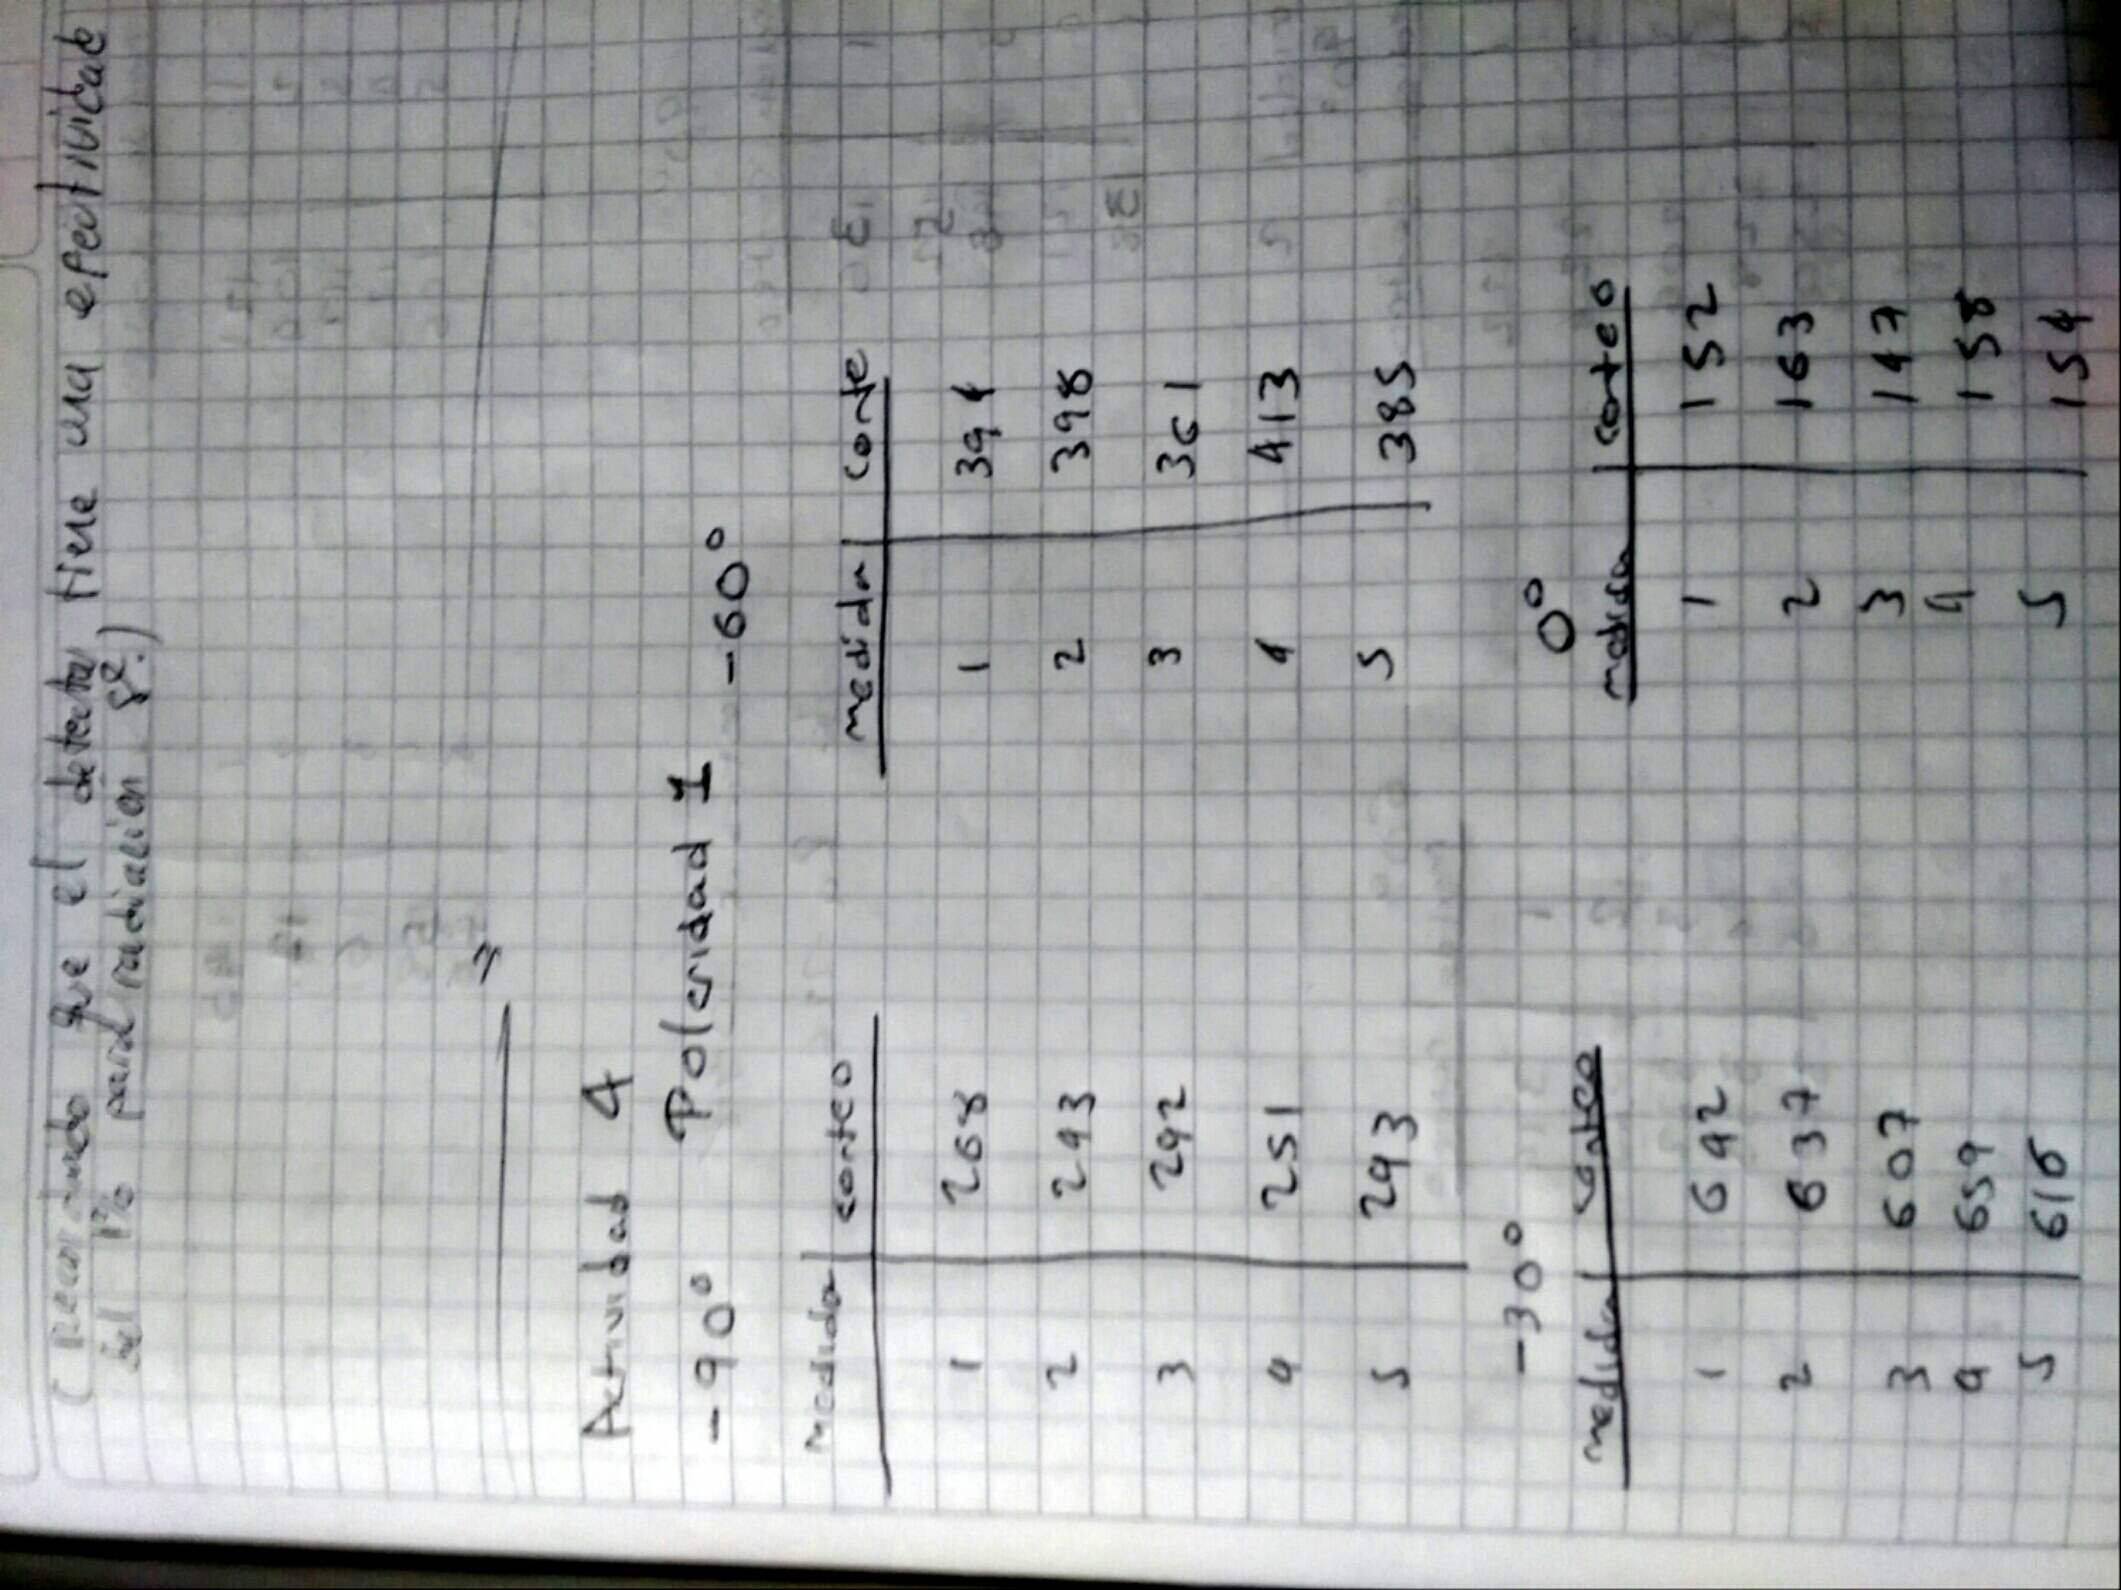 (recordando que el detector tiene una efectividad
del 1% para radiación γ.)
Actividad 4
Polaridad 1
-90°
Medida conteo
1 268
2 293
3 292
4 251
5 293
-60°
medida conte
1 394
2 398
3 361
4 413
5 385
-30°
medida conteo
1 692
2 637
3 607
4 659
5 616
0°
medida conteo
1 152
2 163
3 147
4 158
5 154